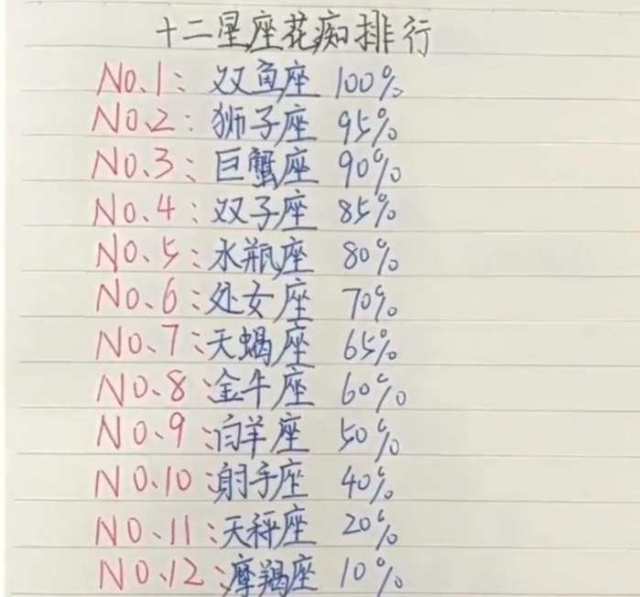 十二星座花痴排行
No.1: 双鱼座 100%
No.2: 狮子座 95%
No.3: 巨蟹座 90%
No.4: 双子座 85%
No.5: 水瓶座 80%
No.6: 处女座 70%
No.7: 天蝎座 65%
No.8: 金牛座 60%
No.9: 白羊座 50%
No.10: 射手座 40%
No.11: 天秤座 20%
No.12: 摩羯座 10%